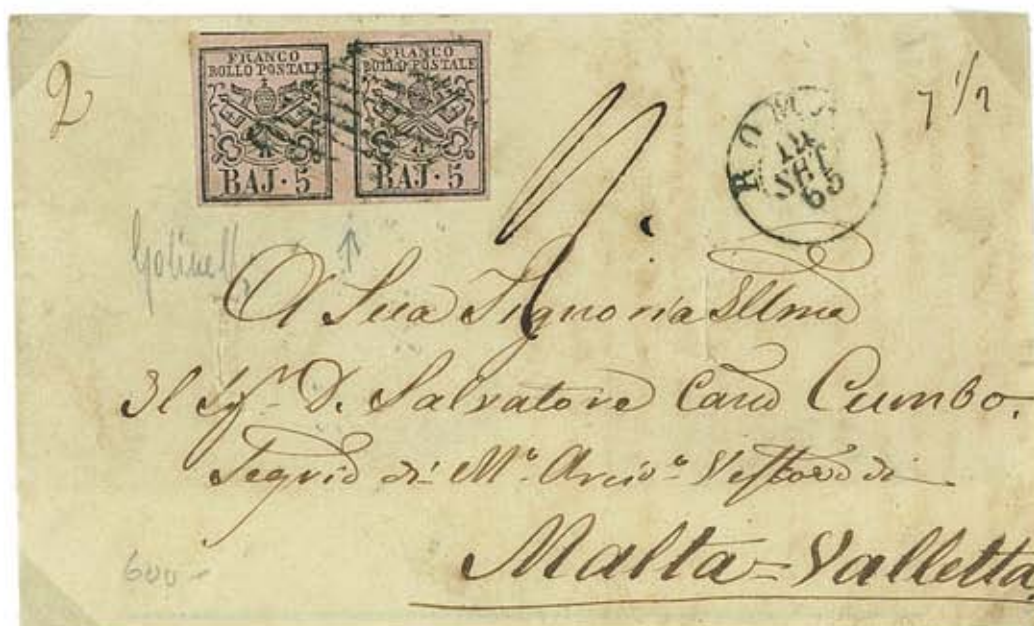 2
FRANCO
BOLLO POSTALE
BAJ·5
FRANCO
BOLLO POSTALE
BAJ·5
ROMA
14
SET
65
7 1/2
Golinelli
A Sua Signoria Illma
Il Sigr. D. Salvatore Cano Cumbo.
di Mr. Arcivo Vescovo di
Malta=Valletta
600-